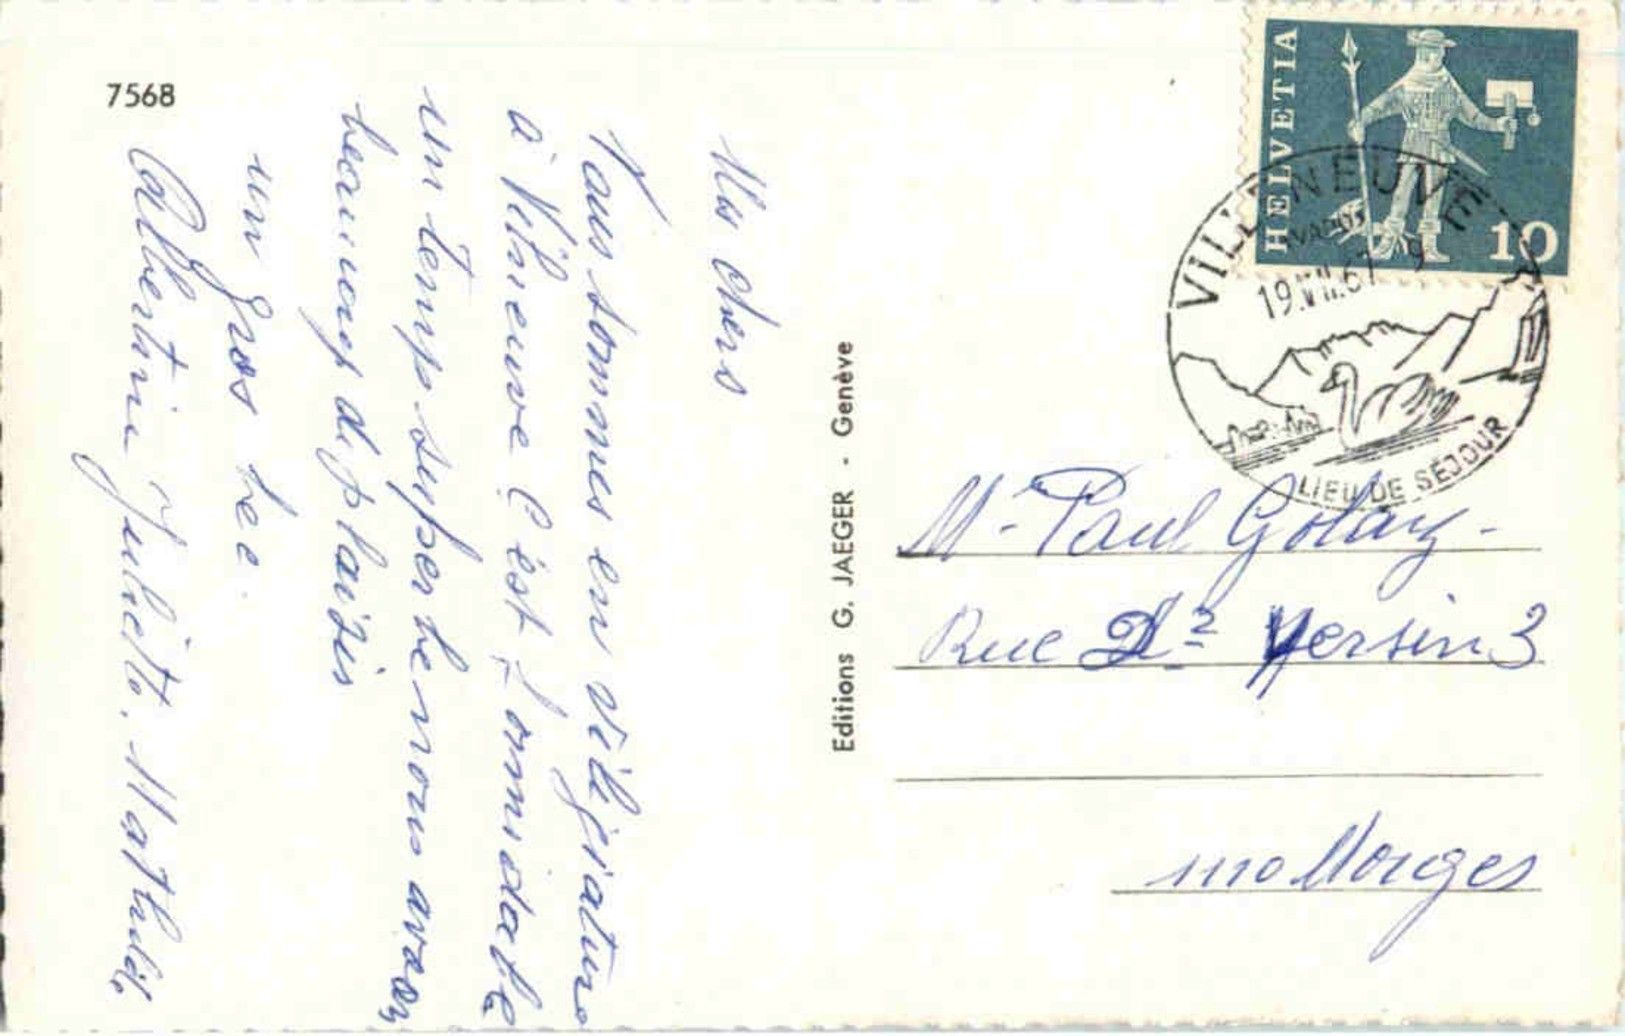 7568
Ms chers
Nous sommes en viléjiature
à Vilneuve C'est formidable
un temps superbe nous avons
beaucoup de plaisir
un gros bec.
Albertine Juliette. Mathilde
Editions G. JAEGER - Genève
HELVETIA
10
VILLENEUVE
19.VII.67
LIEU DE SÉJOUR
M. Paul Golay-
Rue Dr Yersin 3
1110 Morges